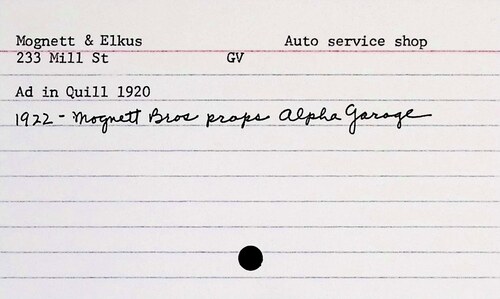 Mognett & Elkus Auto service shop
233 Mill St GV
Ad in Quill 1920
1922 - Mognett Bros props Alpha Garage